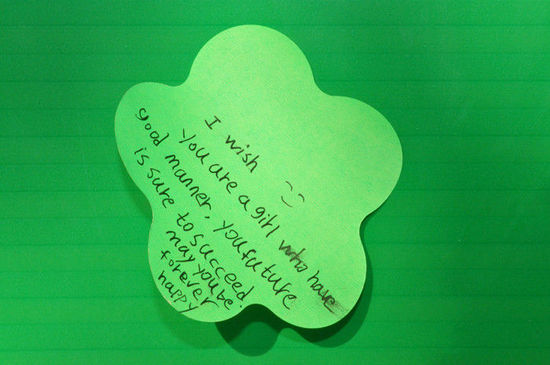 I wish
You are a girl who have
good manner, you future
is sure to succeed.
may you be
forever
happy